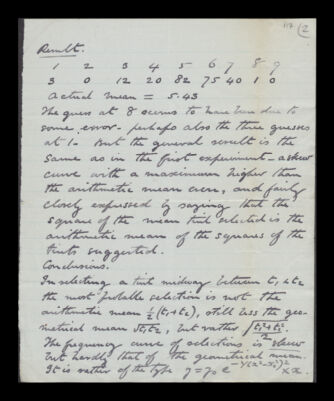 117 (2
Result.
1 2 3 4 5 6 7 8 9
3 0 12 20 82 75 40 1 0
Actual mean = 5.43
The guess at 8 seems to have been due to
some error - perhaps also the three guesses
at 1. But the general result is the
same as in the first experiment - a skew
curve with a maximum higher than
the arithmetic mean even, and fairly
closely expressed by saying that the
square of the mean tint selected is the
arithmetic mean of the squares of the
tints suggested.
Conclusions.
In selecting a tint midway between t₁ & t₂
the most probable selection is not the
arithmetic mean ½(t₁+t₂), still less the geo-
metrical mean √t₁t₂, but rather √(t₁²+t₂²)/2.
The frequency curve of selections is skew
but hardly that of the geometrical mean.
It is rather of the type y = y₀ e